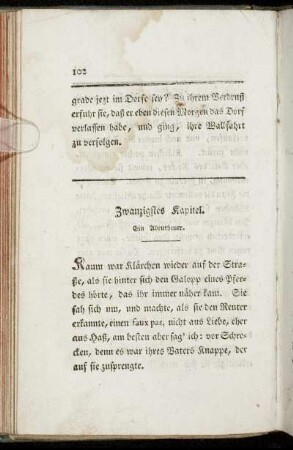 102
grade jezt im Dorfe sey? Zu ihrem Verdruß
erfuhr sie, daß er eben diesen Morgen das Dorf
verlassen habe, und ging, ihre Wallfahrt
zu verfolgen.
Zwanzigstes Kapitel.
Ein Abentheuer.
Kaum war Klärchen wieder auf der Stra-
ße, als sie hinter sich den Galopp eines Pfer-
des hörte, das ihr immer näher kam. Sie
sah sich um, und machte, als sie den Reuter
erkannte, einen faux pas, nicht aus Liebe, eher
aus Haß, am besten aber sag' ich: vor Schre-
cken, denn es war ihres Vaters Knappe, der
auf sie zusprengte.